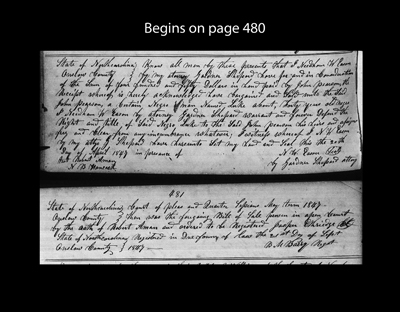 Begins on page 480
State of Northcarolina, Know all men by these presents that I Needham W Eason
Onslow County } by my attorney Gardner Shepard have for and in Consideration
of the Sum of four hundred and fifty Dollars in hand paid by John pearson the
Receipt whereof is hereby acknowledged have bargained and Sold unto the Said
John pearson a Certain Negro man Named Luke about forty years old Negro
I Needham W Eason by attorney Gardner Shepard warrant and forever Defend the
Right and title of Said Negro Luke to the Said John pearson his heirs and assigns
free and Clear from any incumbrance whatsoever, I witness whereof I N W Eason
by my attoy G Shepard have hereunto Set my hand and Seal this the 20th
Day of April 1847 in presence of N W. Eason Seal
Test Robert Aman by Gardner Shepard attoy
N B Hancock
481
State of Northcarolina, Court of pleas and Quarter Sessions May term 1847
Onslow County } then was the foregoing Bill of Sale proven in open Court
by the oath of Robert Aman and ordered to be Registered Jasper Etheridge Clk
State of Northcarolina Registered in Due form of Law the 21st Day of Sept
Onslow County } 1847